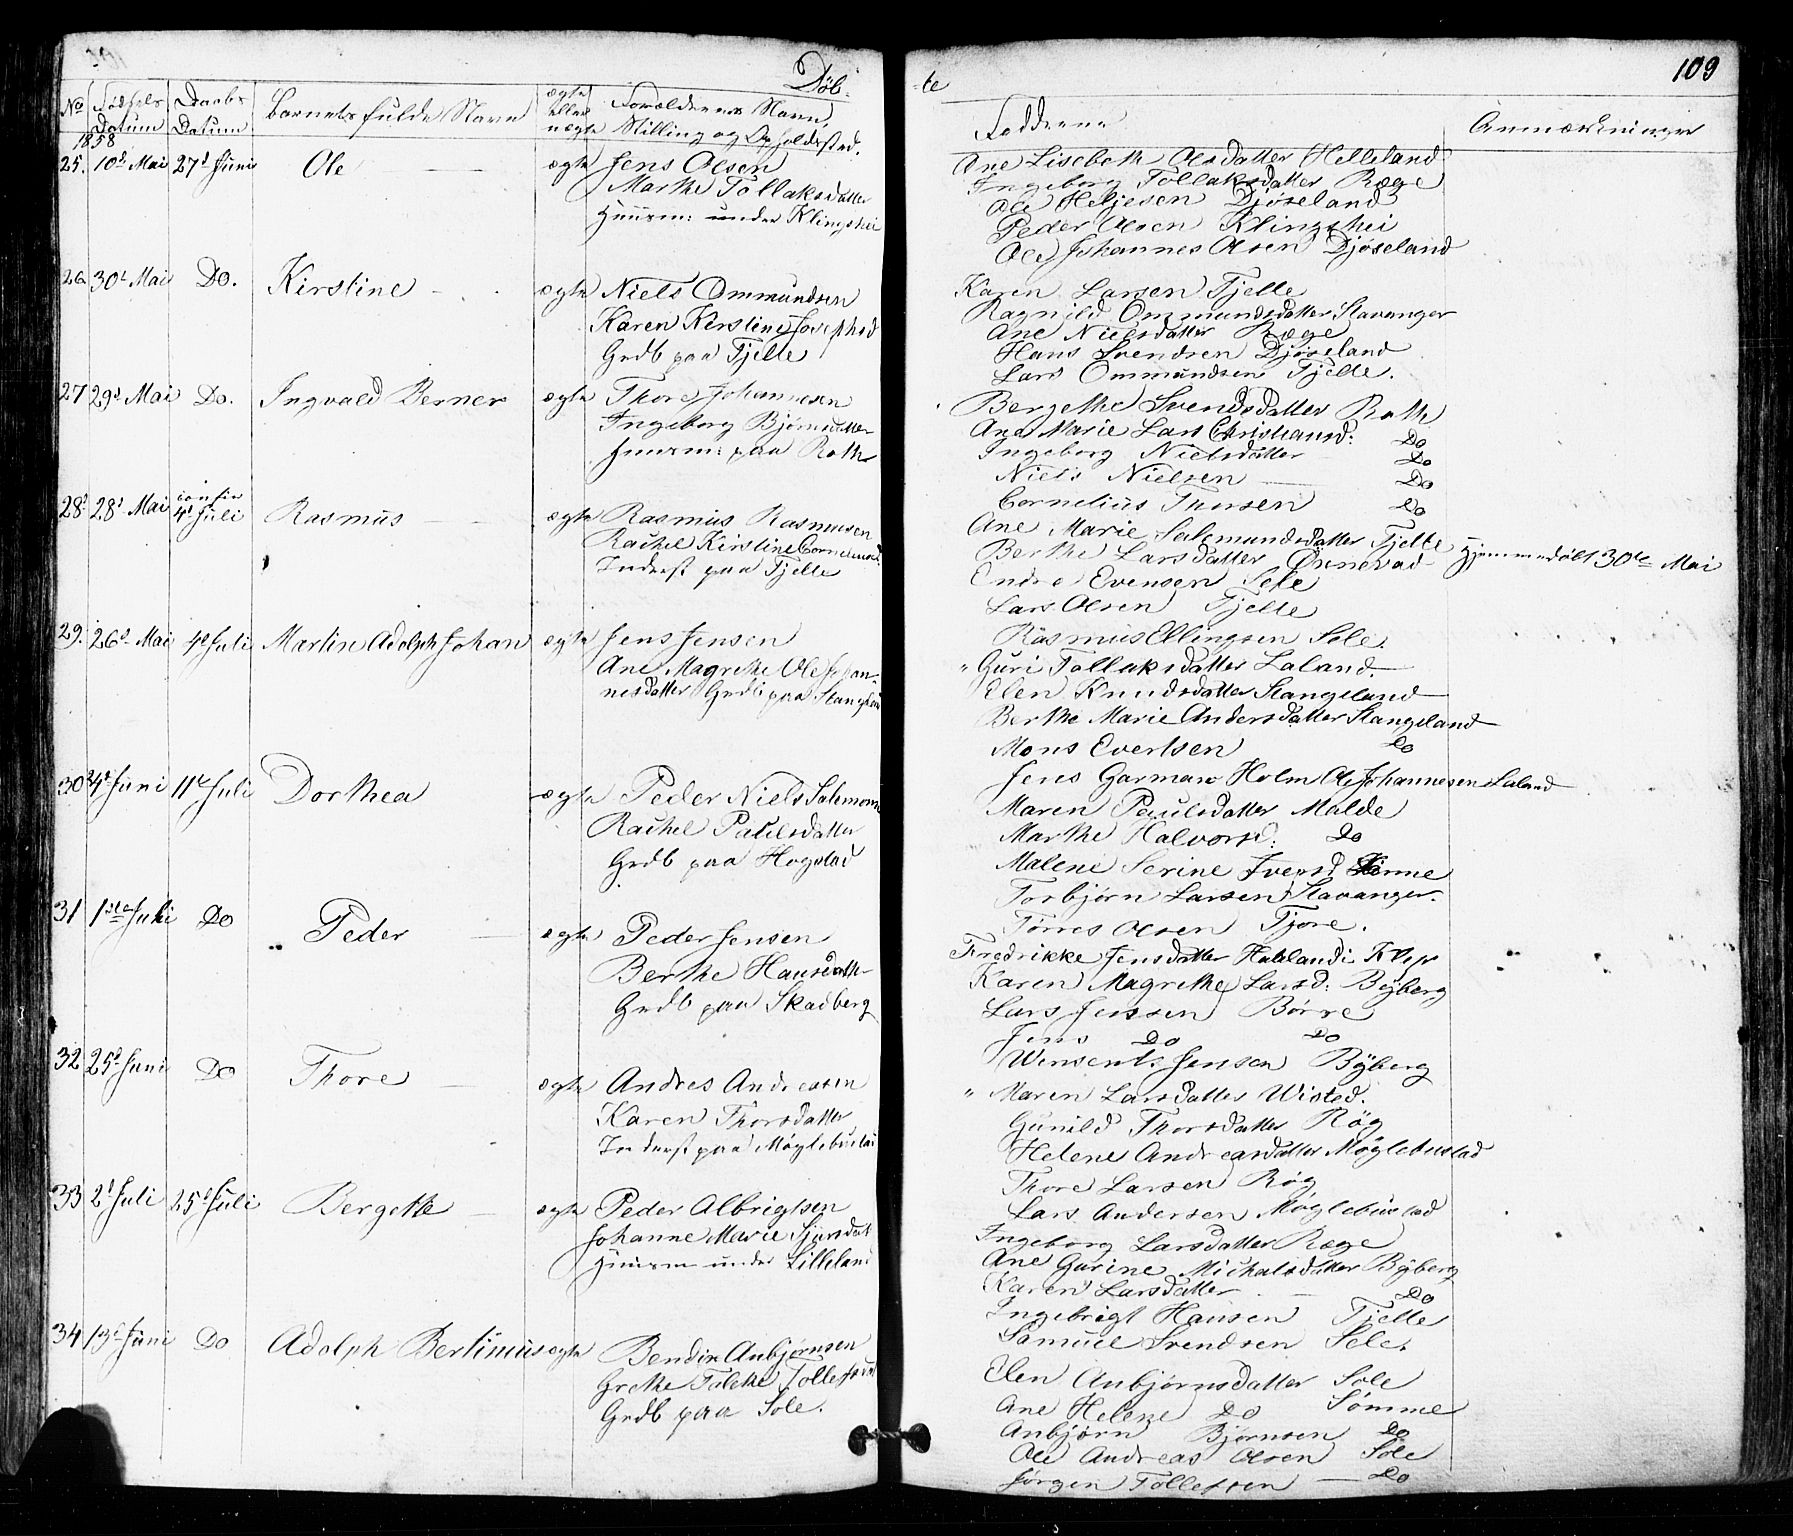 Döb-
No
Fødsels Datum
Daabs Datum
Barnets fulde Navn
ægte eller uægte
Forældrenes Navn, Stilling og Opholdssted.
1858
25. 10d Mai 27d Juni Ole ægte Jens Olsen
Marthe Tollaksdatter
Huusm: under Klingshei
26 30d Mai Do. Kirstine ægte Niels Ommundsen
Karen Kirstine Josephsd
Grdb paa Tjelte
27 29d Mai Do. Ingvald Berner ægte Thore Johannesen
Ingeborg Bjørnsdatter
Huusm: paa Roth
28 28d Mai 4d Juli Rasmus ægte Rasmus Rasmusen
Rachel Kirstine Corneliusd.
Inderst paa Tjelte
29. 26d Mai 4d Juli Martin Adolph Johan ægte Jens Jensen
Ane Magrethe Ole Johan-
nesdatter Grdb paa Stangeland
30 4d Juni 11d Juli Dorthea ægte Peder Niels Salemons
Rachel Paulsdatter
Grdb paa Hogstad
31 1ste Juli Do Peder ægte Peder Jensen
Berthe Hansdatter
Grdb paa Skadberg
32 25d Juni Do Thore ægte Andres Andreasen
Karen Thorsdatter
Inderst paa Møglebustad
33 2d Juli 25d Juli Bergethe ægte Peder Albrigtsen
Johanne Marie Sjursdat
Huusm under Lilleland
34 13d Juni Do Adolph Bertinius ægte Bendix Anbjørnsen
Grethe Tabethe Tollefsdat
Grdb paa Sole.
-te
109
Faddere
Anmærkninger
Ane Lisebeth Olsdatter Helleland
Ingeborg Tollaksdatter Ræge
Ole Heljesen Djøseland
Peder Olsen Klingshei
Ole Johannes Olsen Djøseland
Karen Larsen Tjelte
Ragnild Ommundsdatter Stavanger
Ane Nielsdatter Ræge
Hans Svendsen Djøseland
Lars Ommundsen Tjelte.
Bergethe Svendsdatter Roth
Ane Marie Lars Christiansd: Do
Ingeborg Nielsdatter Do
Niels Nielsen Do
Cornelius Thorsen Do
Ane Marie Salemundsdatter Tjelte Hjemmedøbt 30te Mai
Berthe Larsdatter Ønnerad
Endre Evensen Sele
Lars Olsen Tjelte
Rasmus Ellingsen Sole.
Guri Tollaksdatter Laland.
Elen Knudsdatter Stangeland
Berthe Marie Andersdatter Stangeland
Mons Evertsen Do
Jens Garman Holm Ole Johannesen Laland
Maren Paulsdatter Malde
Marthe Halvorsd: Do
Malene Serine Iversd
Torbjørn Larsen Stavanger.
Tørres Olsen Tjore.
Fredrikke Jensdatter Habelandi Klep
Karen Magrethe Larsd: Byberg
Lars Jenssen Børre
Jens Do Do
Winsents Jensen Byberg
Maren Larsdatter Wisted.
Gunild Thorsdatter Røg
Helene Andreasdatter Møglebustad
Thore Larsen Røg
Lars Andersen Møglebustad
Ingeborg Larsdatter Ræge
Ane Gurine Michalsdatter Byberg
Karen Larsdatter Do
Ingebrigt Hansen Tjelte
Samuel Svendsen Sele.
Elen Anbjørnsdatter Sole
Ane Helene Do Sømme
Anbjørn Bjørnsen Do
Ole Andreas Olsen Sole
Jørgen Tollefsen Do